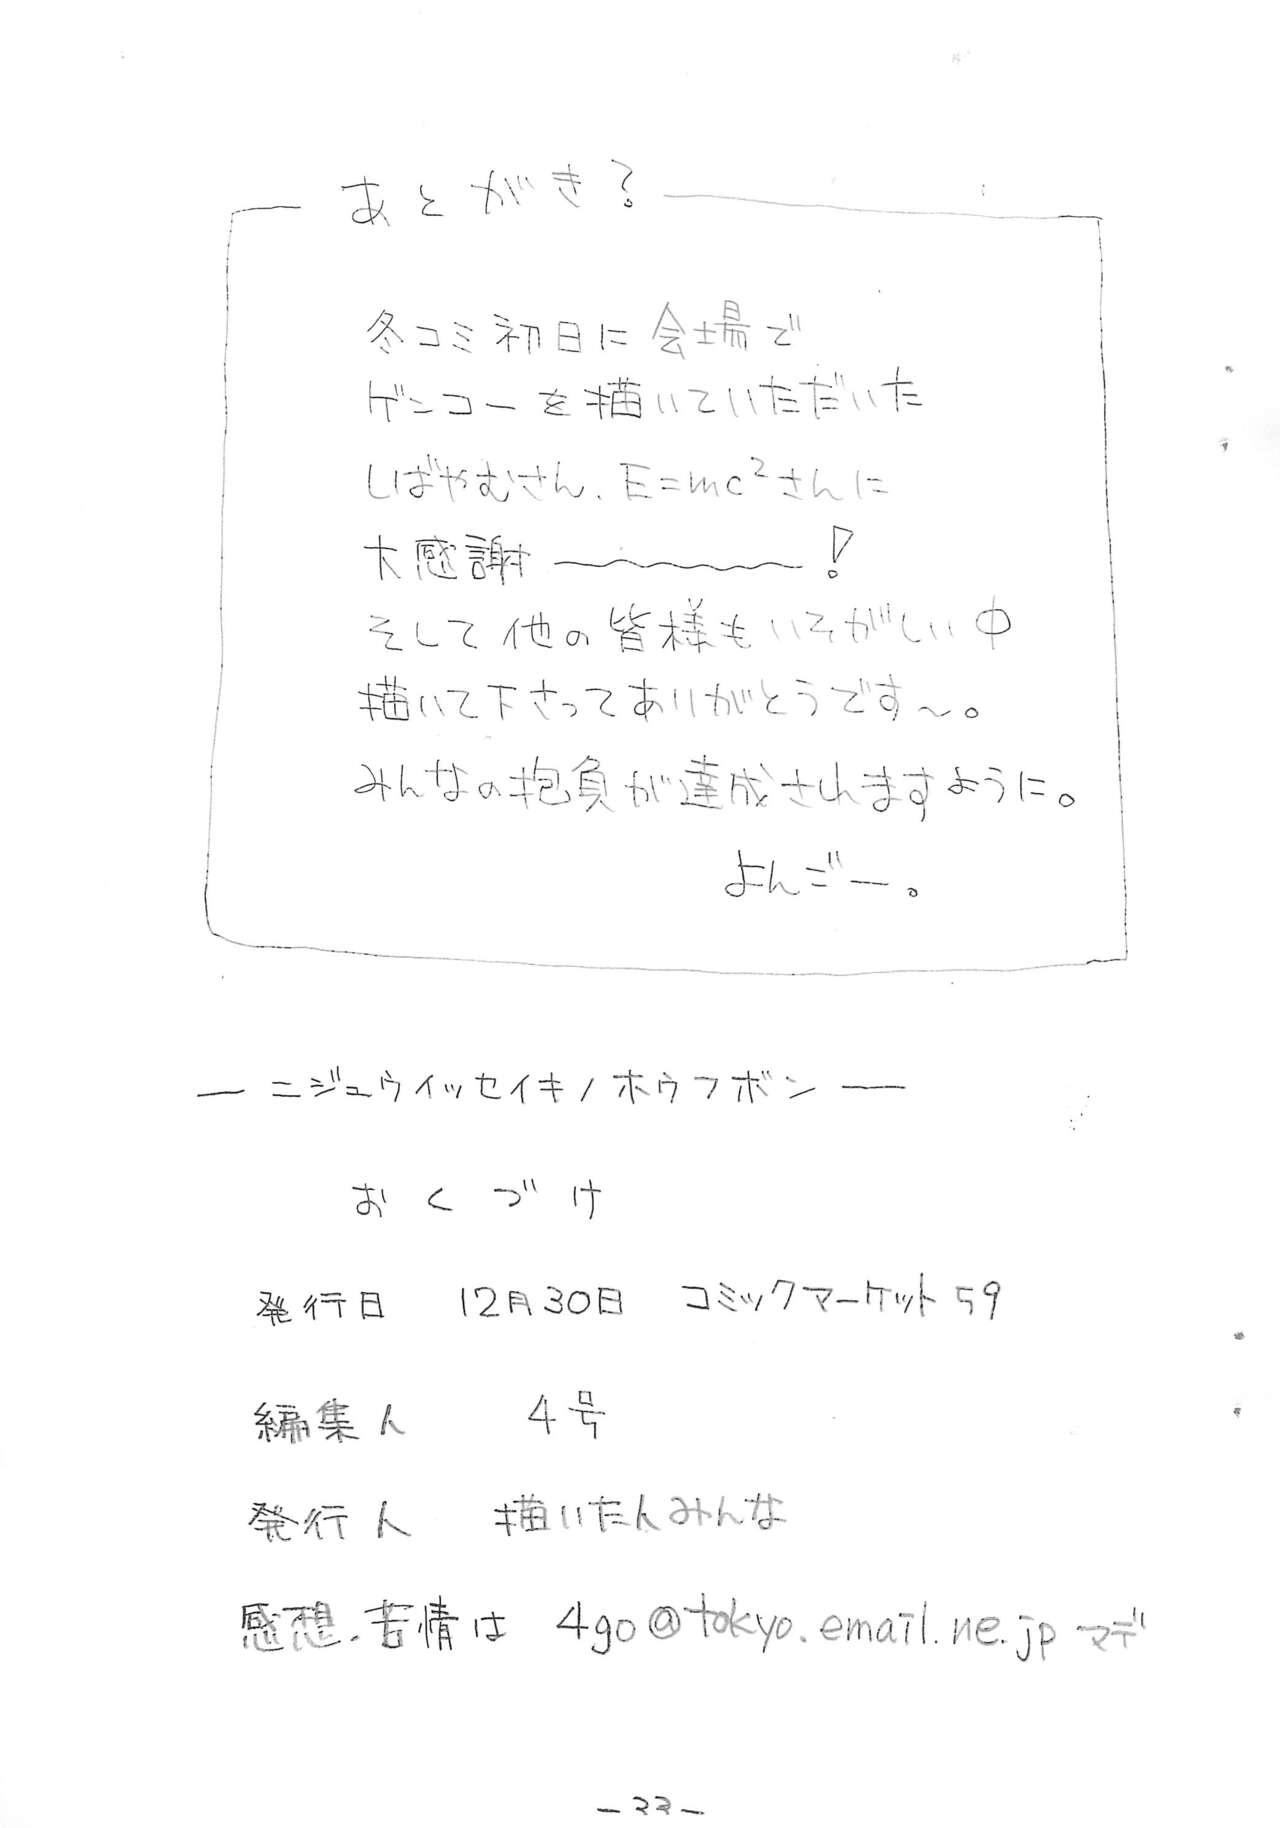 あとがき?
冬コミ初日に会場で
ゲンコーを描いていただいた
しばやむさん、E=mc²さんに
大感謝〜〜〜〜!
そして他の皆様もいそがしい中
描いて下さってありがとうです〜。
みんなの抱負が達成されますように。
よんごー。
― ニジュウイッセイキノホウフボン ―
おくづけ
発行日 12月30日 コミックマーケット59
編集人 4号
発行人 描いた人みんな
感想、苦情は 4go@tokyo.email.ne.jp マデ